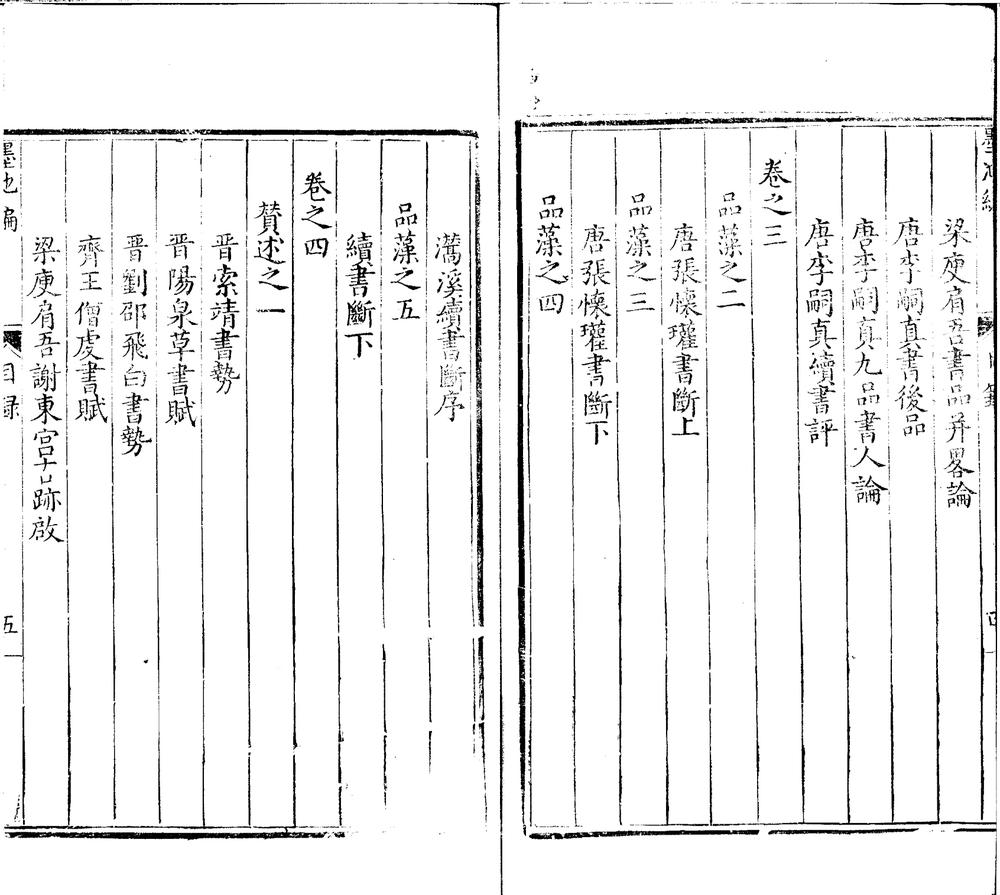 梁庾肩吾書品并畧論
唐李嗣真書後品
唐李嗣真九品書人論
唐李嗣真續書評
卷之三
品藻之二
唐張懷瓘書斷上
品藻之三
唐張懷瓘書斷下
品藻之四
灊溪續書斷序
品藻之五
續書斷下
卷之四
贊述之一
晋索靖書勢
晋陽泉草書賦
晋劉邵飛白書勢
齊王僧虔書賦
梁庾肩吾謝東宫古跡啟
墨池編
目録
五